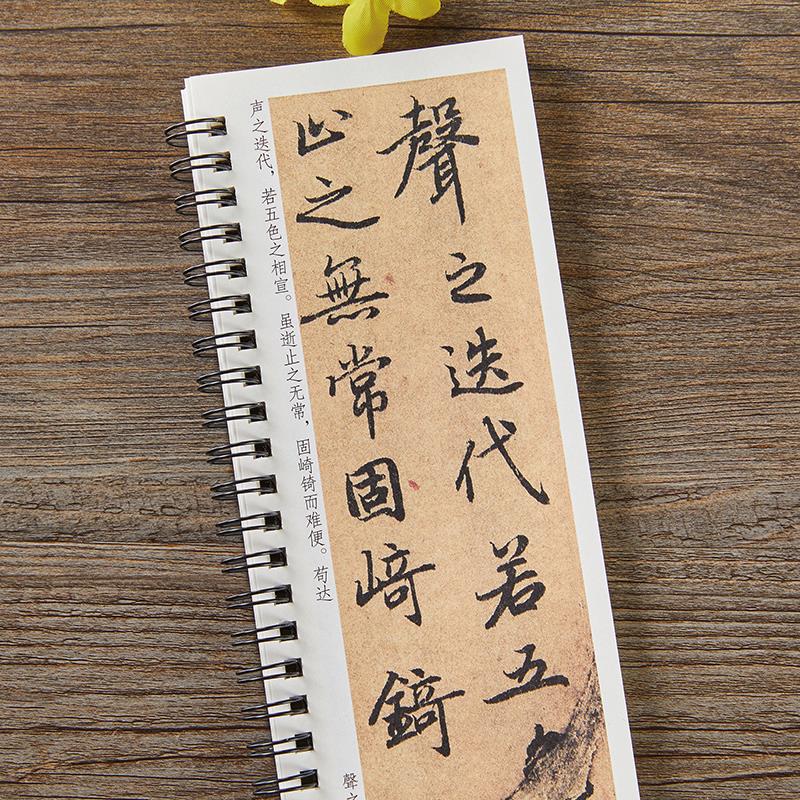 聲之迭代若五
止之無常固崎錡
声之迭代，若五色之相宣。虽逝止之无常，固崎锜而难便。苟达
聲